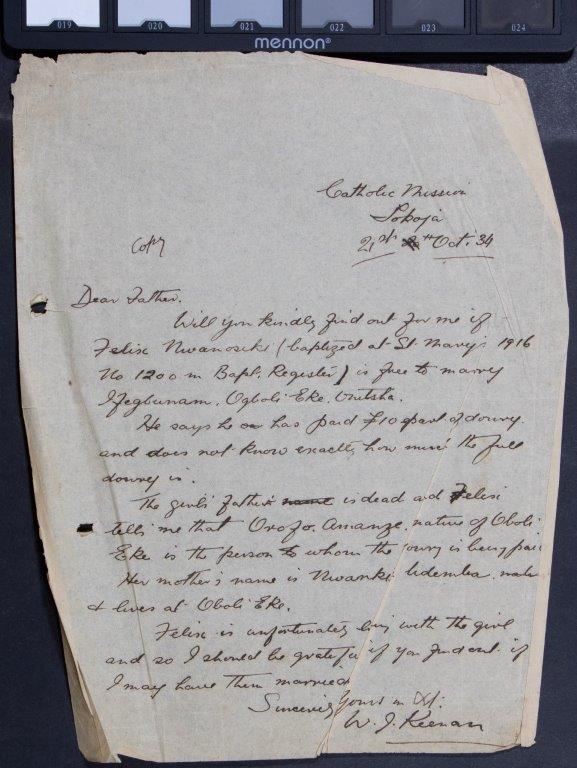 019 020 021 022 023 024
mennon®
Catholic Mission
Lokoja
21st Oct. 34
Copy
Dear Father.
Will you kindly find out for me if
Felix Nwanosiki (baptized at St Mary's 1916
No 1200 in Bapt. Register) is free to marry
Ifegbunam, Ogboli Eke, Onitsha.
He says he has paid £10 part of dowry
and does not know exactly how much the full
dowry is.
The girl's father's name is dead and Felix
tells me that Orofo Amanze, native of Oboli
Eke is the person to whom the dowry is being paid
Her mother's name is Nwanki Udemba
& lives at Oboli Eke.
Felix is unfortunately living with the girl
and so I should be grateful if you find out if
I may have them married
Sincerely Yours in Xt.
W. J. Keenan